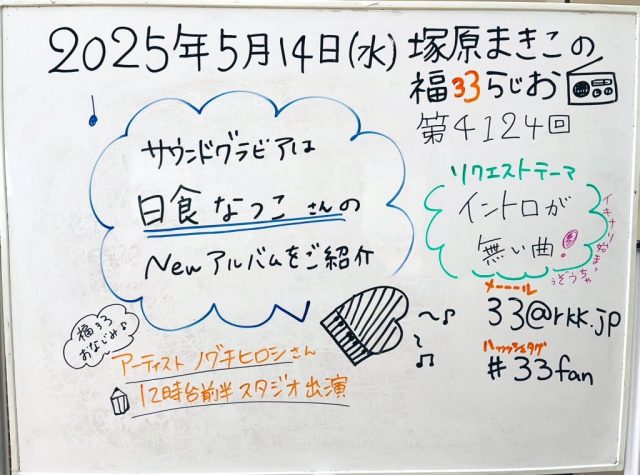 2025年5月14日(水) 塚原まきこの
福33らじお
第4124回
サウンドグラビアは
日食なつこ さんの
Newアルバムをご紹介
リクエストテーマ
イントロが
無い曲!
イキナリ始まっ
ちゃうぞ
メーーール
33@rkk.jp
ハッッシュタグ
#33fan
福33
おなじみ♪
アーティスト ノグチヒロシさん
12時台前半 スタジオ出演